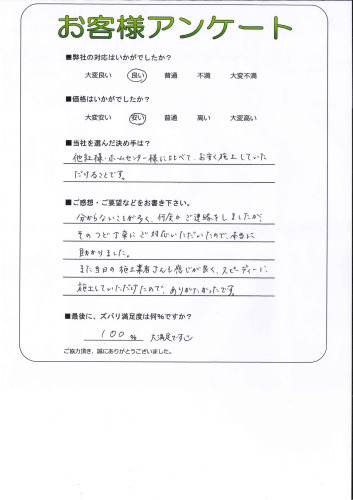 お客様アンケート
■弊社の対応はいかがでしたか？
大変良い 良い 普通 不満 大変不満
■価格はいかがでしたか？
大変安い 安い 普通 高い 大変高い
■当社を選んだ決め手は？
他社様・ホームセンター様に比べて、お安く施工していた
だけることです。
■ご感想・ご要望などをお書き下さい。
分からないことが多く、何度かご連絡をしましたが、
そのつど丁寧にご対応いただいたので、本当に
助かりました。
また当日の施工業者さんも感じが良く、スピーディーに
施工していただけたので、ありがたかったです。
■最後に、ズバリ満足度は何%ですか？
100% 大満足です
ご協力頂き、誠にありがとうございました。